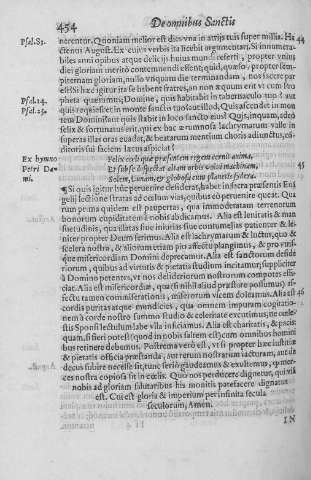 454
De omnibus Sanctis
Psal. 83.
nerentur. Quoniam melior est dies vna in atrijs tuis super millia. Ha
44
ctenus August. Ex cuius verbis ita licebit argumentari. Si innumera-
biles anni opibus atque delicijs huius mundi referti, propter vnius
diei gloriam meritò contemnendi essent, quid, quæso, propter sem-
piternam gloriam, nullo vnquam die terminandam, nos facere par
Psal. 14.
pheta quærimus; Domine, quis habitabit in tabernaculo tuo? aut
Psal. 23.
quis requiescet in monte sancto tuo? aut illud, Quis ascendet in mon
tem Domini? aut quis stabit in loco sancto eius? Quis, inquam, adeò
felix & fortunatus erit, qui ex hac ærumnosa lacrymarum valle in
superas illas oras euadat, & beatarum mentium choris adiunctus,
ditoris sui faciem lætus aspiciat?
Ex hymno
Petri Da-
mi.
Felix cœli quæ præsentem regem cernit anima,
45
Et sub se spectat altam orbis volui machinam,
Solem, Lunam, & globosa cum planetis sydera.
¶ Si quis igitur hûc peruenire desiderat, habet in sacra præsentis Euan
gelij lectione stratas ad cœlum vias, quibus eò peruenire queat. Qua
rum prima quidem est paupertas, qua immoderatam terrenorum
bonorum cupiditatem à nobis abdicamus. Alia est lenitatis & man
suetudinis, qua illatas siue iniurias siue contumelias patienter & le-
niter propter Deum ferimus. Alia est lachrymarum & luctus, quo &
scelera nostra, & aliorum etiam pio affectu plangimus, & pro vtris-
que misericordiam Domini deprecamur. Alia est sanctorum deside
riorum, quibus ad virtutis & pietatis studium incitamur, suppliciter
à Domino petentes, vt nos desideriorum nostrorum compotes effi-
ciat. Alia est misericordiæ, qua (si nihil aliud præstare possumus) af-
fectu tamen commiserationis, miserorum vicem doleamus. Alia est
46
cordis puritas atque mundicies, qua omnem impuram cogitatio-
nem à corde nostro summo studio & celeritate excutimus, ne cœle-
stis Sponsi lectulum labe vlla inficiamus. Alia est charitatis, & pacis:
quam, si fieri potest (quod in nobis saltem est) cum omnibus homini
bus retinere debemus. Postrema verò est, vt si propter hæc iustitiæ
& pietatis officia præstanda, aut rerum nostrarum iacturam, aut de
decus subire necesse sit, tunc seriò gaudeamus & exultemus, quia mer
ces nostra copiosa sit in cœlis. Quò nos perducere dignetur, qui vià
nobis ad gloriam salutaribus his monitis patefacere dignatus
est. Cui est gloria & imperium per infinita secula
seculorum, Amen.
IN